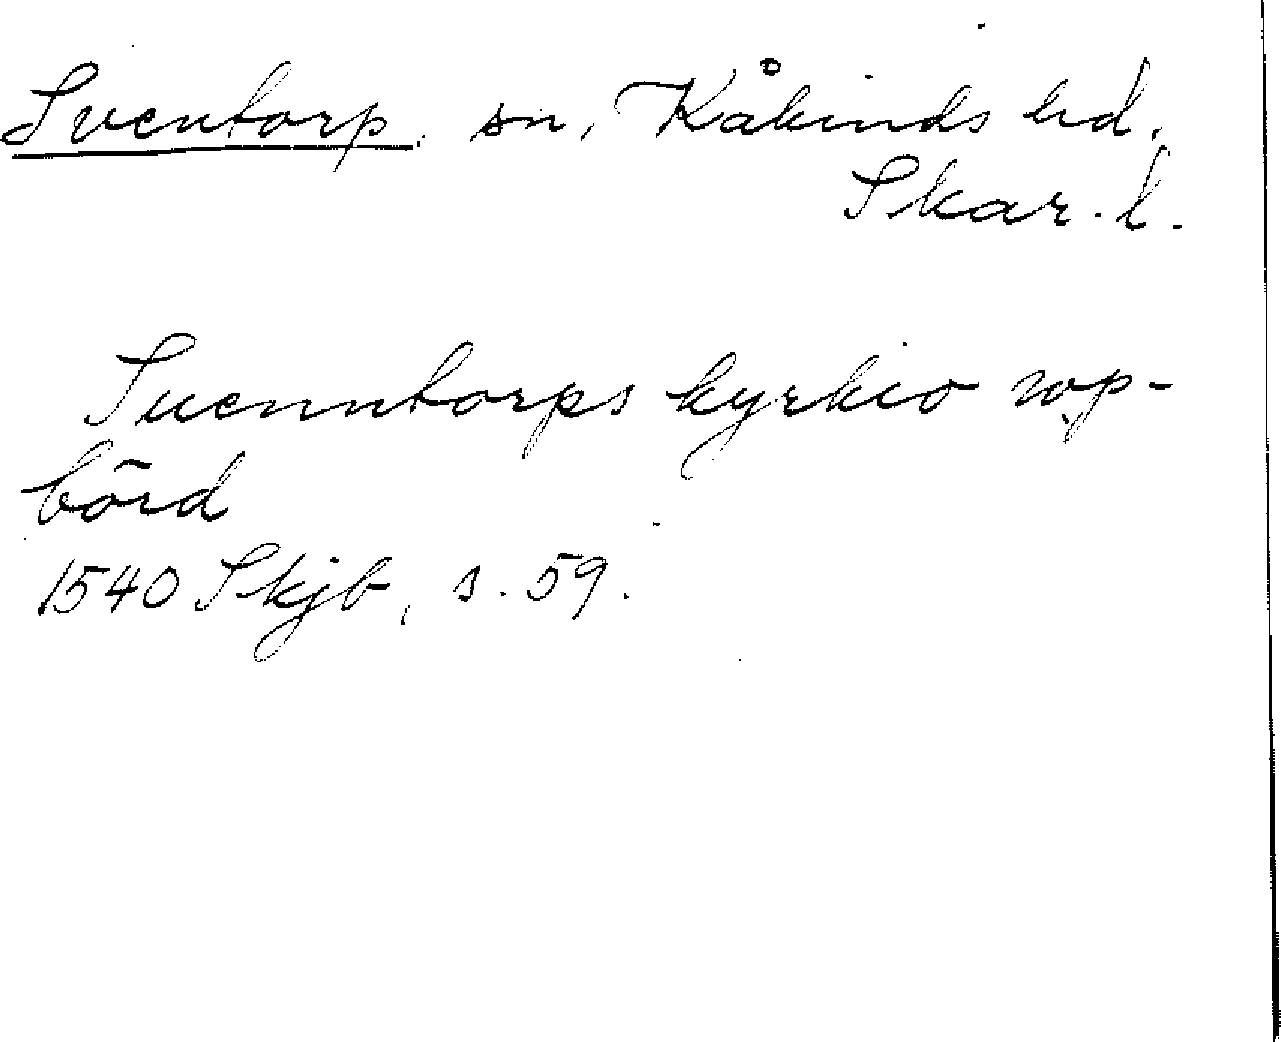 Sventorp, sn, Kåkinds hd,
Skar. l.
Suenntorps kyrkio wp-
börd
1540 Skjb, s. 59.